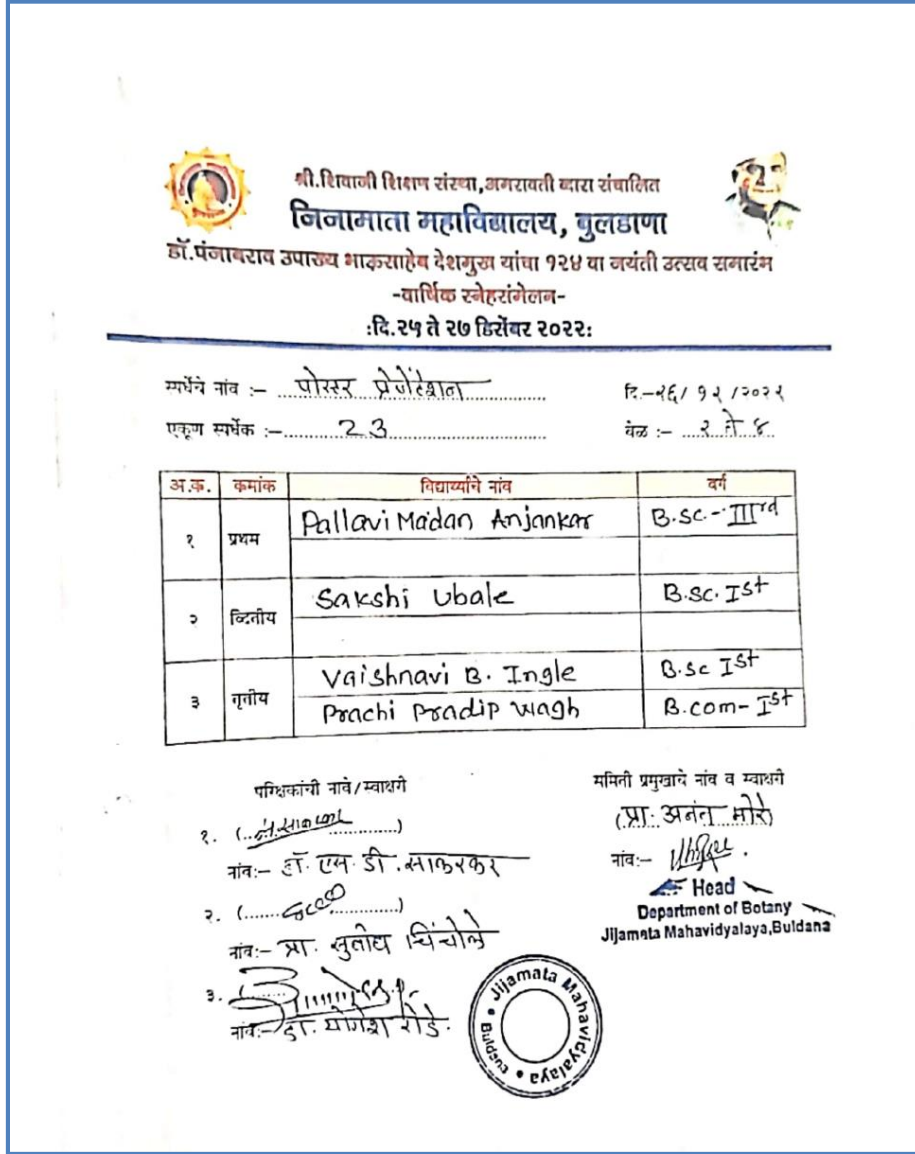 श्री.शिवाजी शिक्षण संस्था,अमरावती व्दारा संचालित
जिजामाता महाविद्यालय, बुलडाणा
डॉ.पंजाबराव उपाख्य भाऊसाहेब देशमुख यांचा १२४ वा जयंती उत्सव समारंभ
-वार्षिक स्नेहसंमेलन-
:दि.२५ ते २७ डिसेंबर २०२२:
स्पर्धेचे नांव :- पोस्टर प्रेजेंटेशन दि.-२६/१२/२०२२
एकूण स्पर्धक :- 23 वेळ :- २ ते ४
अ.क. क्रमांक विद्यार्थ्याचे नांव वर्ग
१ प्रथम Pallavi Madan Anjankar B.sc.-IIIrd
२ व्दितीय Sakshi Ubale B.sc. Ist
३ तृतीय Vaishnavi B. Ingle B.sc Ist
Prachi Pradip Wagh B.com- Ist
परिक्षकांची नावे/स्वाक्षरी समिती प्रमुखाचे नांव व स्वाक्षरी
१. (प्रा. अनंत मोरे)
नांव:- डॉ. एस. डी. साकरकर नांव:-
२. Head
Department of Botany
नांव:- प्रा. सुबोध चिंचोले Jijamata Mahavidyalaya,Buldana
३.
नांव:- डॉ. योगेश रोडे.
Jijamata Mahavidyalaya • Buldana •